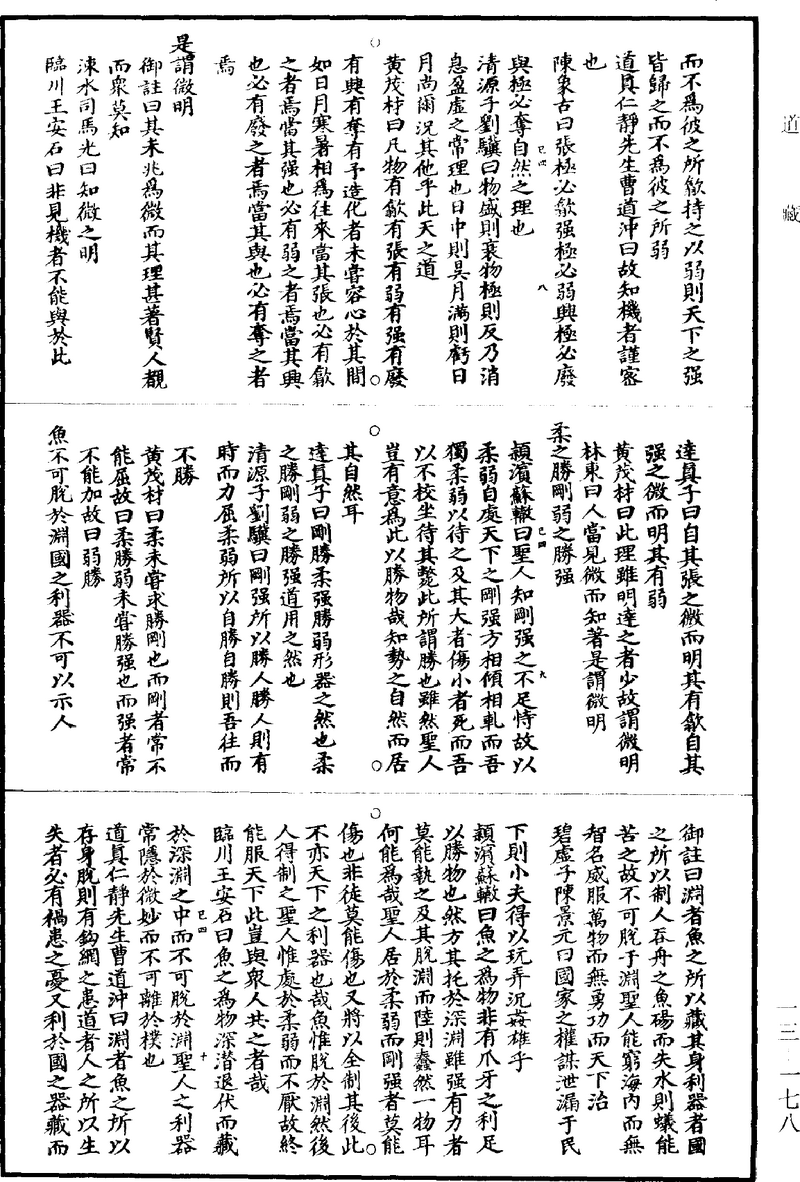 道藏
而不為彼之所歙持之以弱則天下之强
皆歸之而不為彼之所弱
道真仁靜先生曹道沖曰故知機者謹密
也
陳象古曰張極必歙强極必弱興極必廢
與極必奪自然之理也
清源子劉驥曰物盛則衰物極則反乃消
息盈虛之常理也日中則昃月滿則虧日
月尚爾況其他乎此天之道
黃茂材曰凡物有歙有張有弱有强有廢
有興有奪有予造化者未嘗容心於其間
如日月寒暑相為往來當其張也必有歙
之者焉當其强也必有弱之者焉當其興
也必有廢之者焉當其與也必有奪之者
焉
是謂微明
御註曰其未兆為微而其理甚著賢人覩
而衆莫知
涑水司馬光曰知微之明
臨川王安石曰非見機者不能與於此
達真子曰自其張之微而明其有歙自其
强之微而明其有弱
黃茂材曰此理雖明達之者少故謂微明
林東曰人當見微而知著是謂微明
柔之勝剛弱之勝强
潁濱蘇轍曰聖人知剛强之不足恃故以
柔弱自處天下之剛强方相傾相軋而吾
獨柔弱以待之及其大者傷小者死而吾
以不校坐待其斃此所謂勝也雖然聖人
豈有意為此以勝物哉知勢之自然而居
其自然耳
達真子曰剛勝柔强勝弱形器之然也柔
之勝剛弱之勝强道用之然也
清源子劉驥曰剛强所以勝人勝人則有
時而力屈柔弱所以自勝自勝則吾往而
不勝
黃茂材曰柔未嘗求勝剛也而剛者常不
能屈故曰柔勝弱未嘗勝强也而强者常
不能加故曰弱勝
魚不可脫於淵國之利器不可以示人
御註曰淵者魚之所以藏其身利器者國
之所以制人吞舟之魚碭而失水則蟻能
苦之故不可脫于淵聖人能窮海內而無
智名威服萬物而無勇功而天下治
碧虛子陳景元曰國家之權謀泄漏于民
下則小夫得以玩弄況姦雄乎
潁濱蘇轍曰魚之為物非有爪牙之利足
以勝物也然方其托於深淵雖强有力者
莫能執之及其脫淵而陸則蠢然一物耳
何能為哉聖人居於柔弱而剛强者莫能
傷也非徒莫能傷也又將以全制其後此
不亦天下之利器也哉魚惟脫於淵然後
人得制之聖人惟處於柔弱而不厭故終
能服天下此豈與衆人共之者哉
臨川王安石曰魚之為物深潛退伏而藏
於深淵之中而不可脫於淵聖人之利器
常隱於微妙而不可離於樸也
道真仁靜先生曹道沖曰淵者魚之所以
存身脫則有鈎網之患道者人之所以生
失者必有禍患之憂又利於國之器藏而
一三·一七八